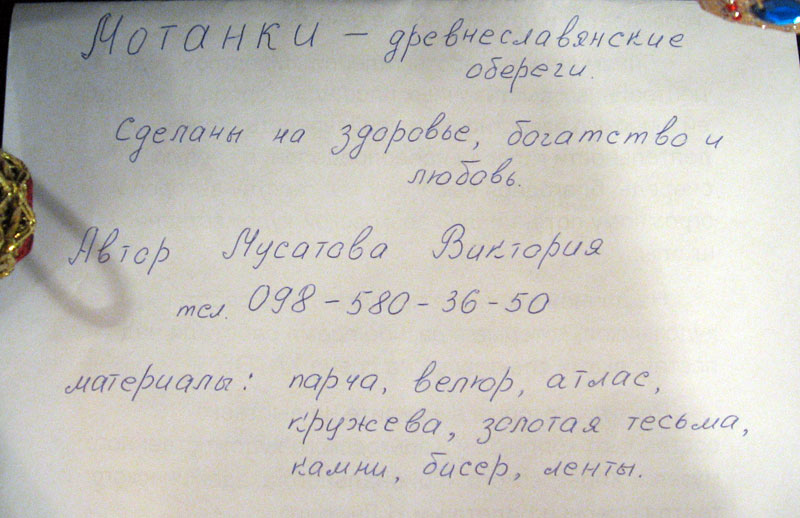 Мотанки – древнеславянские
обереги.
Сделаны на здоровье, богатство и
любовь.
Автор Мусатова Виктория
тел. 098-580-36-50
материалы: парча, велюр, атлас,
кружева, золотая тесьма,
камни, бисер, ленты.